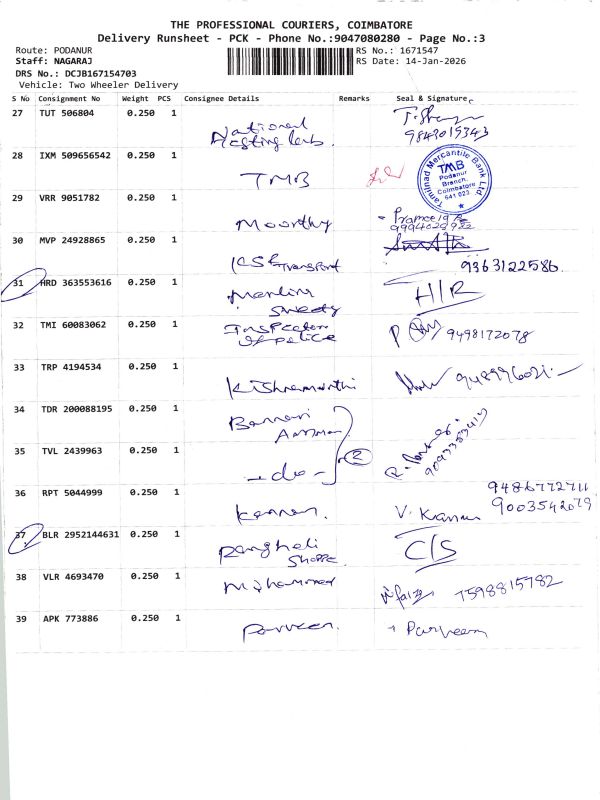 THE PROFESSIONAL COURIERS, COIMBATORE
Delivery Runsheet - PCK - Phone No.:9047080280 - Page No.:3
Route: PODANUR
RS No.: 1671547
Staff: NAGARAJ
RS Date: 14-Jan-2026
DRS No.: DCJB167154703
Vehicle: Two Wheeler Delivery
S No Consignment No Weight PCS Consignee Details Remarks Seal & Signature
27 TUT 506804 0.250 1 National Testing Lab.
9843019343
28 IXM 509656542 0.250 1 TMB
Tamilnad Mercantile Bank Ltd
TMB
Podanur
Branch,
Coimbatore
641 023
29 VRR 9051782 0.250 1 Moorthy
30 MVP 24928865 0.250 1 KSR Transport
9363122586.
31 HRD 363553616 0.250 1 H/R
32 TMI 60083062 0.250 1 Inspector of police
9498172078
33 TRP 4194534 0.250 1 Krishnamorthi
34 TDR 200088195 0.250 1 Bannari Amman
35 TVL 2439963 0.250 1 - do - 2
36 RPT 5044999 0.250 1 Kannan. V. Kannan
9486772711
9003542079
37 BLR 2952144631 0.250 1 C/S
38 VLR 4693470 0.250 1 Mohammed 7598815782
39 APK 773886 0.250 1 Parveen. Parveen